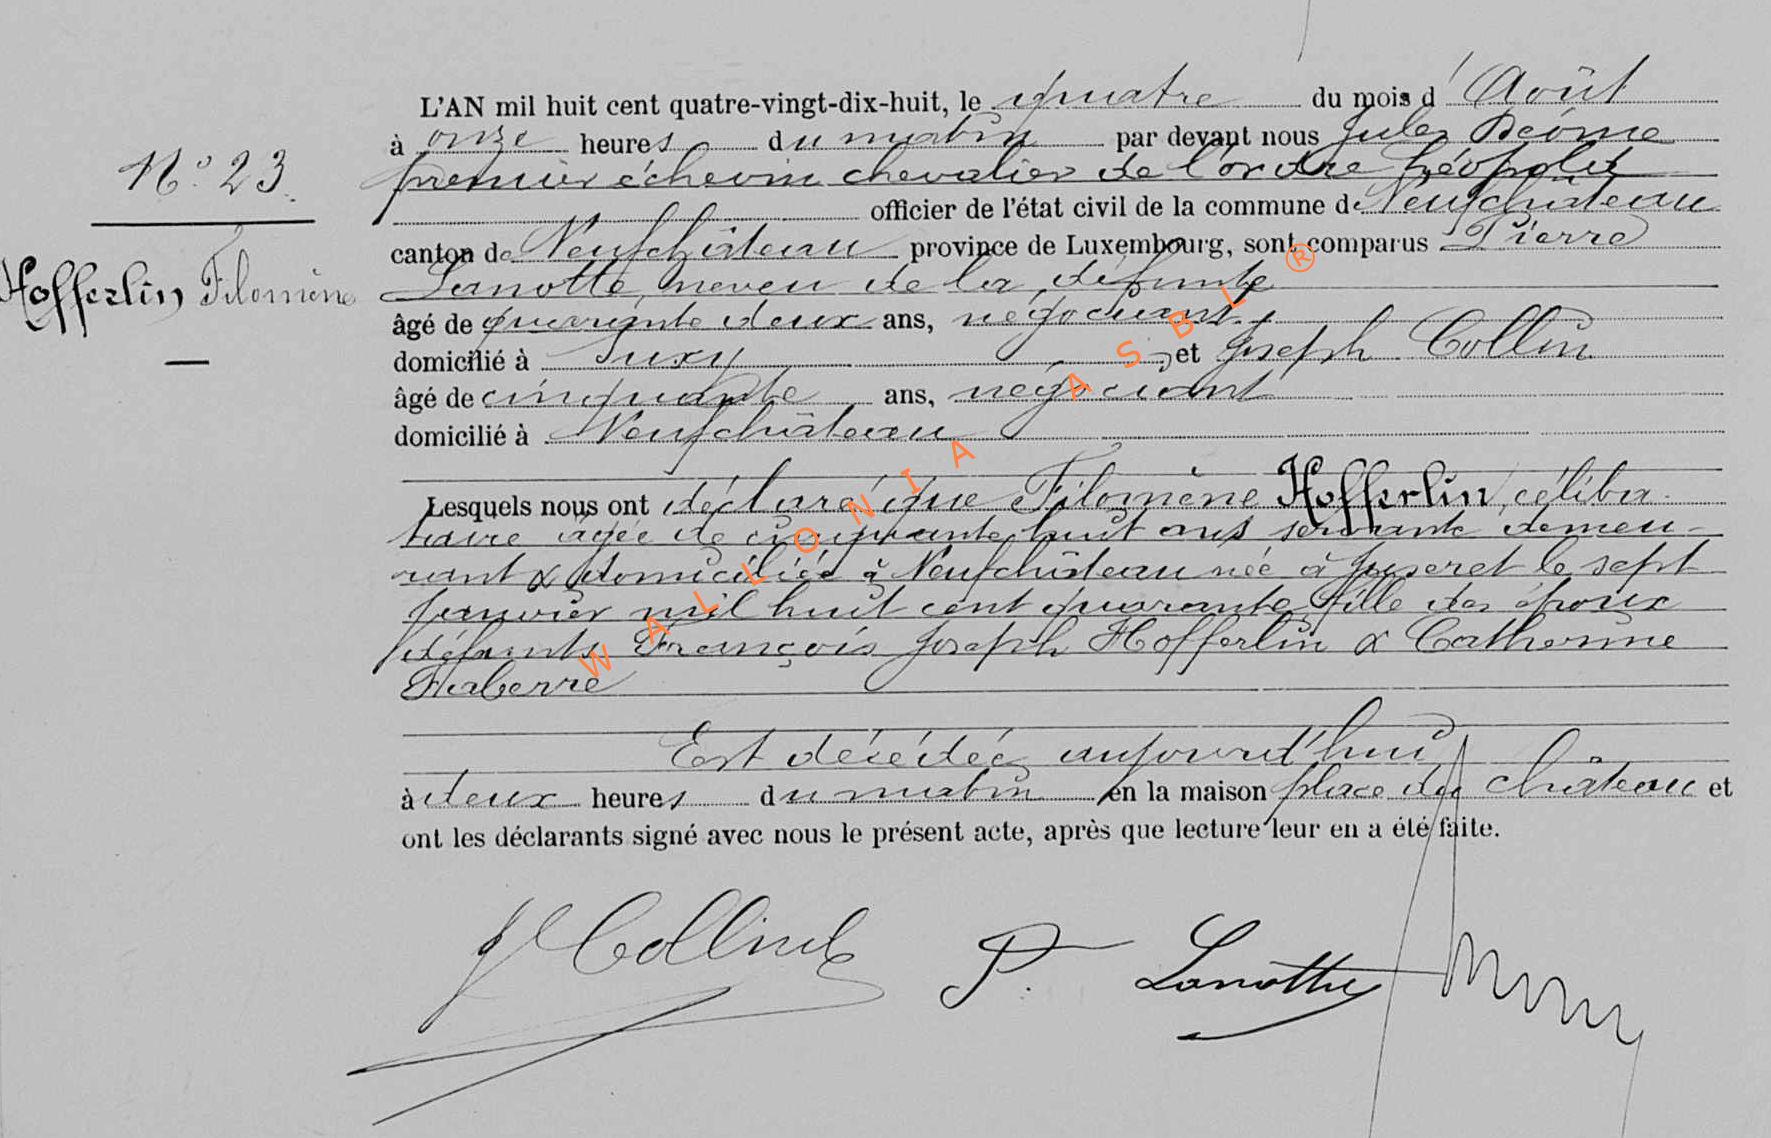 L'AN mil huit cent quatre-vingt-dix-huit, le quatre du mois d'Août
à onze heures du matin par devant nous Jules Déome
premier échevin chevalier de l'ordre Léopold
officier de l'état civil de la commune de Neufchâteau
N° 23.
canton de Neufchâteau province de Luxembourg, sont comparus Pierre
Hofferlin Filomène
Lanotte, neveu de la défunte
âgé de quarante deux ans, négociant
domicilié à Suxy, et Joseph Collin
âgé de cinquante ans, négociant
domicilié à Neufchâteau
Lesquels nous ont déclaré que Filomène Hofferlin, céliba-
taire âgée de cinquante huit ans servante demeu-
rant & domiciliée à Neufchâteau née à Juseret le sept
Janvier mil huit cent quarante, fille des époux
défunts François Joseph Hofferlin & Catherine
Haberre
Est décédée aujourd'hui
à deux heures du matin en la maison place du Château et
ont les déclarants signé avec nous le présent acte, après que lecture leur en a été faite.
J Collin P. Lanotte
WALLONIA ASBL ®